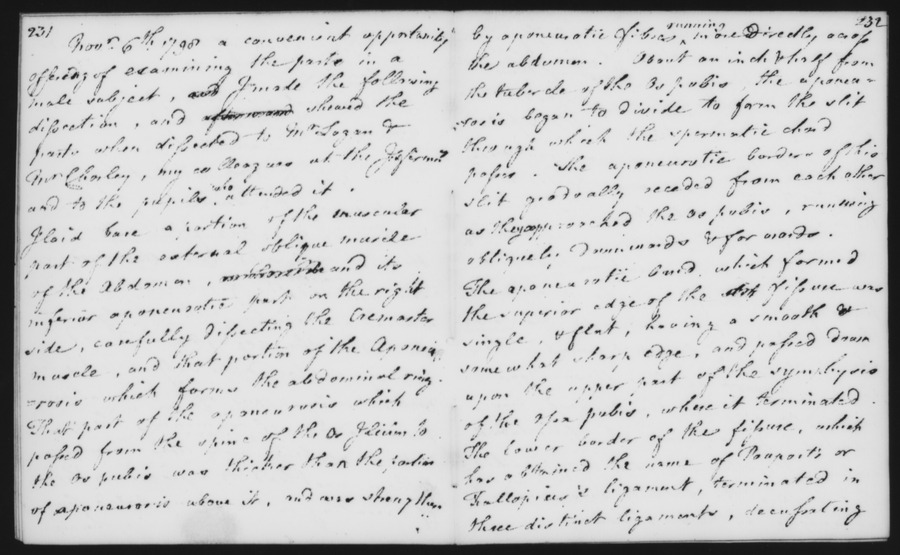 231
Novr. 6th 1798 a convenient opportunity
offering of examining the parts in a
male subject, and I made the following
dissection, and afterward shewed the
parts when dissected to Mr Logan &
Mr Chorley, my colleagues at the Infirmy
and to the pupils who attended it.
I laid bare a portion of the muscular
part of the external oblique muscle
of the Abdomen, and its
inferior aponeurotic part on the right
side, carefully dissecting the Cremaster
muscle, and that portion of the Aponeu
=rosis which forms the abdominal ring.
That part of the aponeurosis which
passed from the spine of the Os Ilium to
the os pubis was thicker than the portion
of aponeurosis above it, and was strengthen
232
by aponeurotic fibres running more directly across
the abdomen. About an inch & half from
the tubercle of the Os pubis, the aponeu=
=rosis began to divide to form the slit
through which the spermatic chord
passes. The aponeurotic borders of this
slit gradually receded from each other
as they approached the os pubis, running
obliquely downwards & forwards.
The aponeurotic band which formed
the superior edge of the slit fissure was
single, & flat, having a smooth &
somewhat sharp edge, and passed down
upon the upper part of the symphysis
of the ossa pubis, where it terminated.
The lower border of the fissure, which
has obtained the name of Poupart's or
Fallopius's ligament, terminated in
three distinct ligaments, decussating